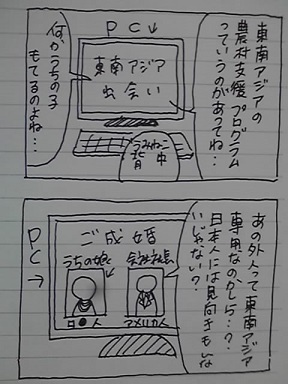 東南アジアの
農村支援プログラム
っていうのがあってね…
PC↓
東南アジア
出会い
何かうちの子
もてるのよね…
うみねこ
背中
あの外人って東南アジア
専用なのかしら…?
日本人には見向きもしな
いじゃない?
PC
→
ご成婚
うちの娘
会社社長
日●人
アメリカ人